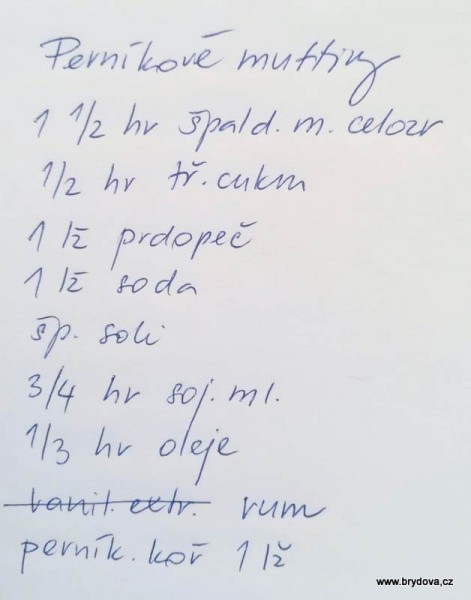 Perníkové muffiny
1 1/2 hr špald. m. celozr
1/2 hr tř. cukru
1 lž prdopeč
1 lž soda
šp. soli
3/4 hr soj. ml.
1/3 hr oleje
vanil. extr. rum
perník. koř 1 lž
www.brydova.cz